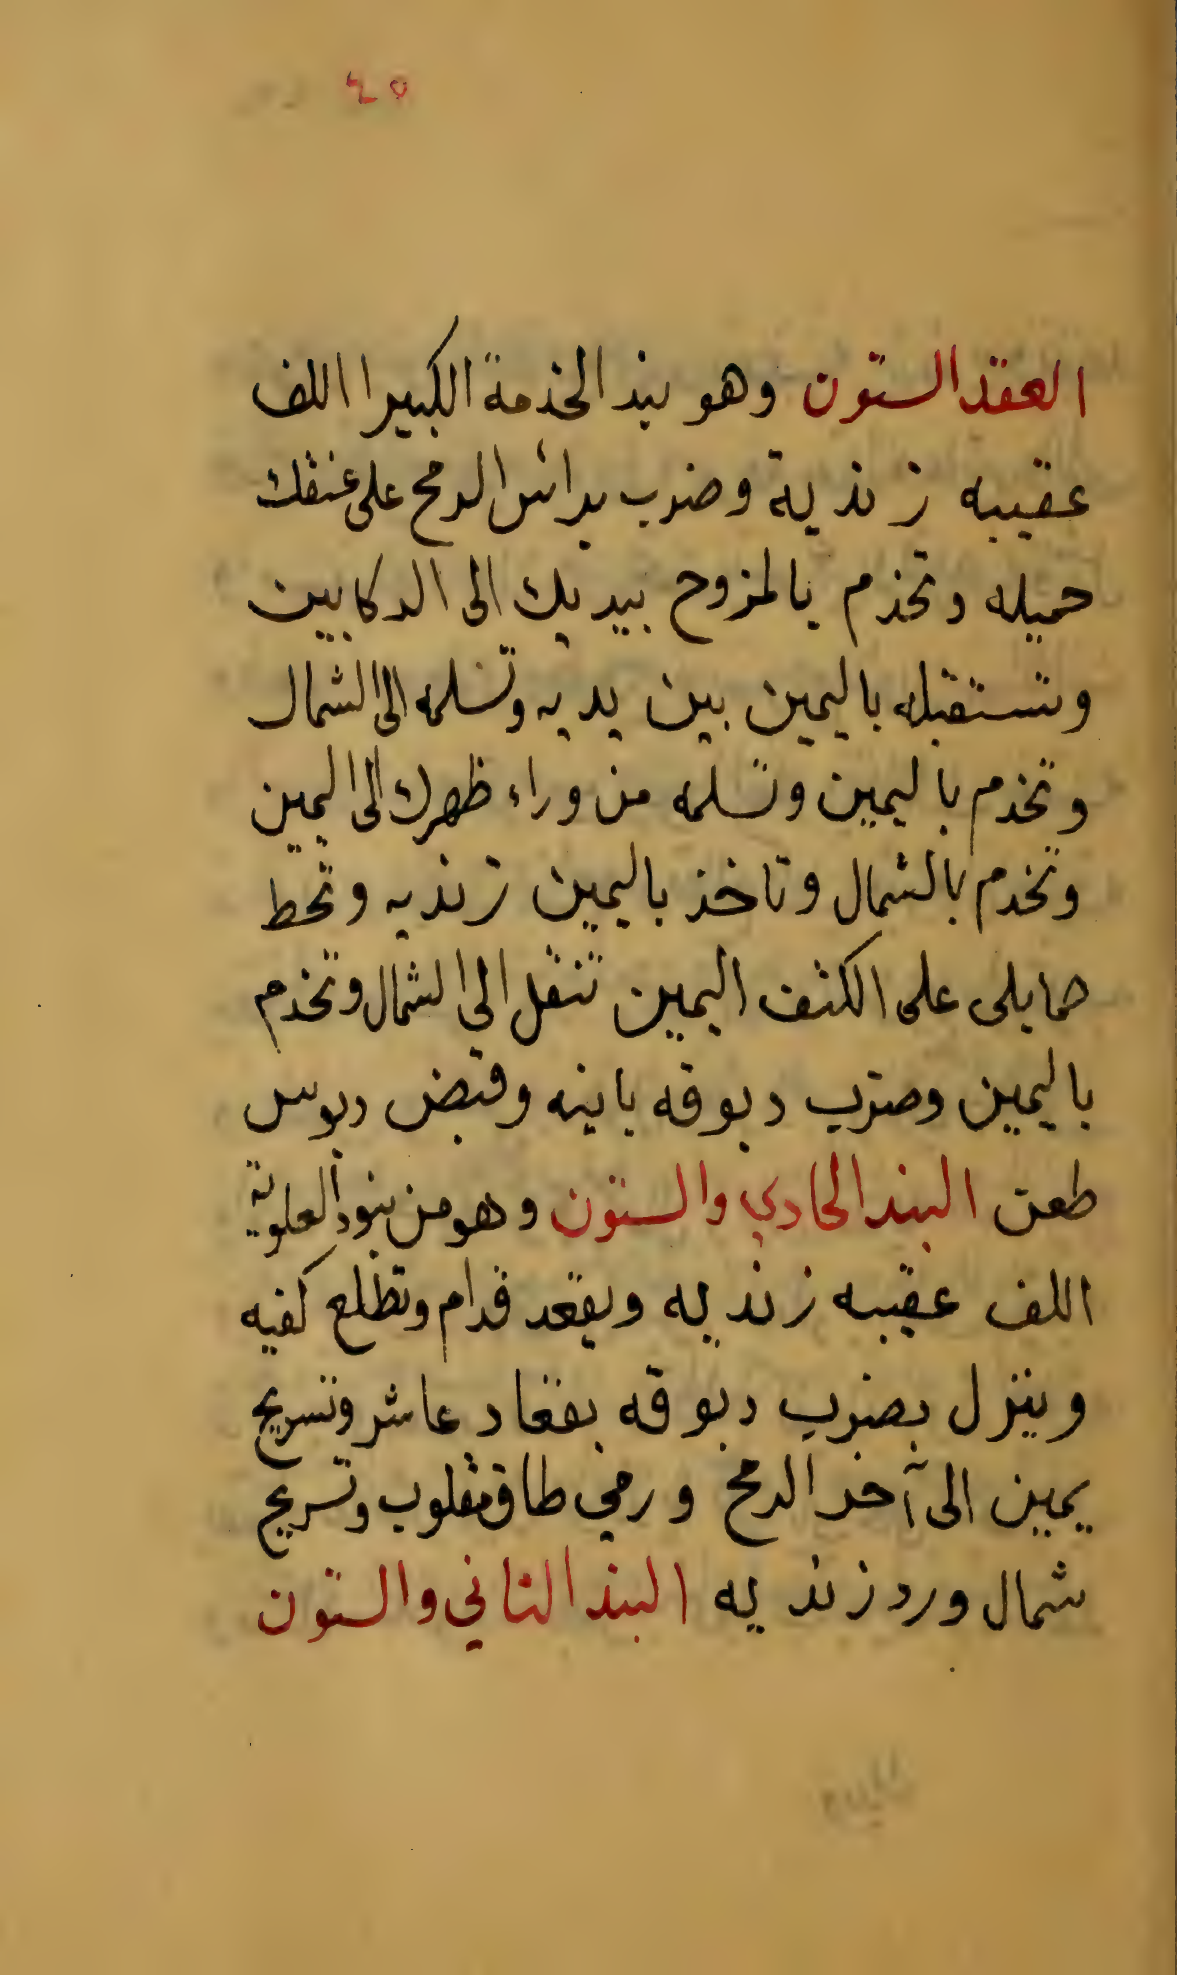 ٤٥
العقد الستون وهو بند الخذمة الكبيرا اللف
عقيبه زندية وضرب برائس الرمح على عنقك
حميله وتخذم بالمزوح بيديك الى الركابين
وتستقبله باليمين بين يديه وتسلمه الى الشمال
وتخذم باليمين وتسلمه من وراء ظهرك الى اليمين
وتخدم بالشمال وتاخذ باليمين زنديه وتحط
حمايلى على الكتف اليمين تنقل الي الشمال وتخذم
باليمين وضرب دبوقه باينه وقبض دبوس
طعن البند الحادي والستون وهو من بنود العلوية
اللف عقيبه زنديه ويقعد قدام وتطلع كفيه
وينزل بضرب دبوقه بفغاد عاشر وتسريح
يمين الى آخر الرمح ورمي طاق مقلوب وتسريح
شمال ورد زنديه البند الثاني والستون